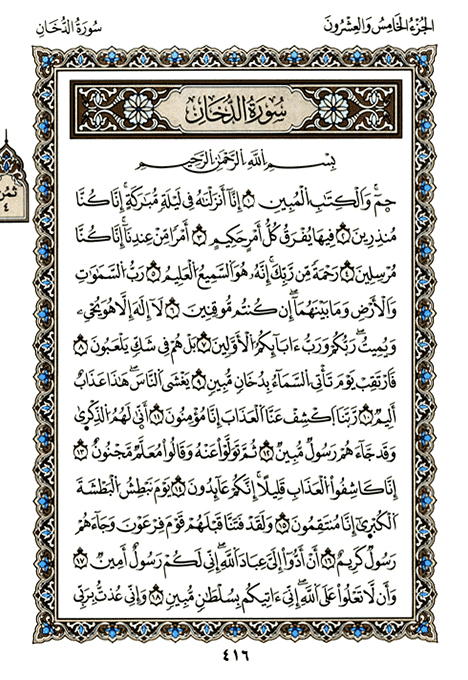 الجُزْءُ الخَامِسُ وَالعِشْرُونَ
سُورَةُ الدُّخَانِ
سُورَةُ الدُّخَانِ
بِسْمِ اللَّهِ الرَّحْمَٰنِ الرَّحِيمِ
حمٓ وَالْكِتَٰبِ الْمُبِينِ ١ إِنَّا أَنزَلْنَٰهُ فِي لَيْلَةٍ مُّبَٰرَكَةٍ إِنَّا كُنَّا
مُنذِرِينَ ٢ فِيهَا يُفْرَقُ كُلُّ أَمْرٍ حَكِيمٍ ٣ أَمْرًا مِّنْ عِندِنَا إِنَّا كُنَّا
مُرْسِلِينَ ٤ رَحْمَةً مِّن رَّبِّكَ إِنَّهُۥ هُوَ السَّمِيعُ الْعَلِيمُ ٥ رَبُّ السَّمَٰوَٰتِ
وَالْأَرْضِ وَمَا بَيْنَهُمَا إِن كُنتُم مُّوقِنِينَ ٦ لَا إِلَٰهَ إِلَّا هُوَ يُحْيِۦ
وَيُمِيتُ رَبُّكُمْ وَرَبُّ ءَابَآئِكُمُ الْأَوَّلِينَ ٧ بَلْ هُمْ فِي شَكٍّ يَلْعَبُونَ ٨
فَارْتَقِبْ يَوْمَ تَأْتِي السَّمَآءُ بِدُخَانٍ مُّبِينٍ ٩ يَغْشَى النَّاسَ هَٰذَا عَذَابٌ
أَلِيمٌ ١٠ رَّبَّنَا اكْشِفْ عَنَّا الْعَذَابَ إِنَّا مُؤْمِنُونَ ١١ أَنَّىٰ لَهُمُ الذِّكْرَىٰ
وَقَدْ جَآءَهُمْ رَسُولٌ مُّبِينٌ ١٢ ثُمَّ تَوَلَّوْا عَنْهُ وَقَالُوا مُعَلَّمٌ مَّجْنُونٌ ١٣
إِنَّا كَاشِفُوا الْعَذَابِ قَلِيلًا إِنَّكُمْ عَآئِدُونَ ١٤ يَوْمَ نَبْطِشُ الْبَطْشَةَ
الْكُبْرَىٰ إِنَّا مُنتَقِمُونَ ١٥ وَلَقَدْ فَتَنَّا قَبْلَهُمْ قَوْمَ فِرْعَوْنَ وَجَآءَهُمْ
رَسُولٌ كَرِيمٌ ١٦ أَنْ أَدُّوا إِلَيَّ عِبَادَ اللَّهِ إِنِّي لَكُمْ رَسُولٌ أَمِينٌ ١٧
وَأَن لَّا تَعْلُوا عَلَى اللَّهِ إِنِّي ءَاتِيكُم بِسُلْطَٰنٍ مُّبِينٍ ١٨ وَإِنِّي عُذْتُ بِرَبِّي
ثُمُن
٤
٤١٦